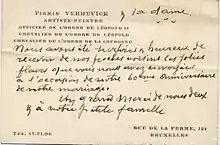 FIRMIN VERWICK
& sa dame.
ARTISTE-PEINTRE
OFFICIER DE L'ORDRE DE LÉOPOLD II
CHEVALIER DE L'ORDRE DE LÉOPOLD
CHEVALIER DE L'ORDRE DE LA COURONNE
Nous avons été surpris & heureux de
recevoir de nos proches voisins les jolies
fleurs que vous nous avez envoyées
à l'occasion de notre anniversaire
de notre mariage.
Un grand Merci de nous deux
& à votre petite famille
TÉL. 17.71.06
RUE DE LA FERME, 121
BRUXELLES